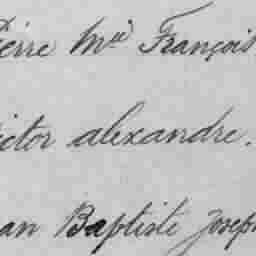 Pierre M.ie François
ictor alexandre.
an Baptiste Joseph